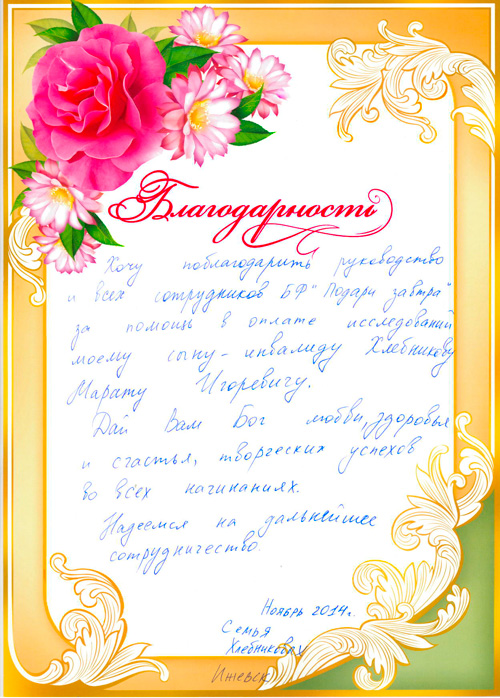 Благодарность
Хочу поблагодарить руководство
и всех сотрудников БФ "Подари завтра"
за помощь в оплате исследований
моему сыну - инвалиду Хлебникову
Марату Игоревичу.
Дай Вам Бог любви, здоровья
и счастья, творческих успехов
во всех начинаниях.
Надеемся на дальнейшее
сотрудничество.
Ноябрь 2014г.
Семья
Хлебниковых
Ижевск